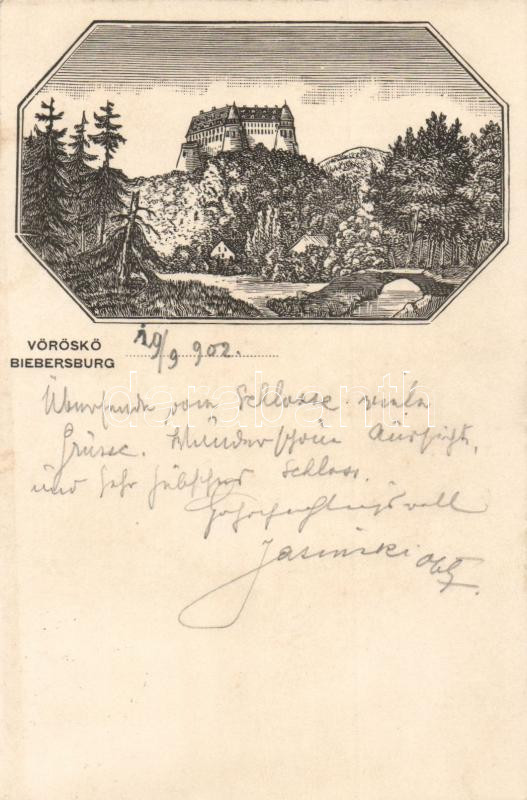 VÖRÖSKŐ
BIEBERSBURG
19/9 902.
Übersende vom Schlosse viele
Grüsse. Wunderschöne Aussicht,
und sehr hübsches Schloss.
Hochachtungsvoll
Jasinski Oblt.
darabanth.com